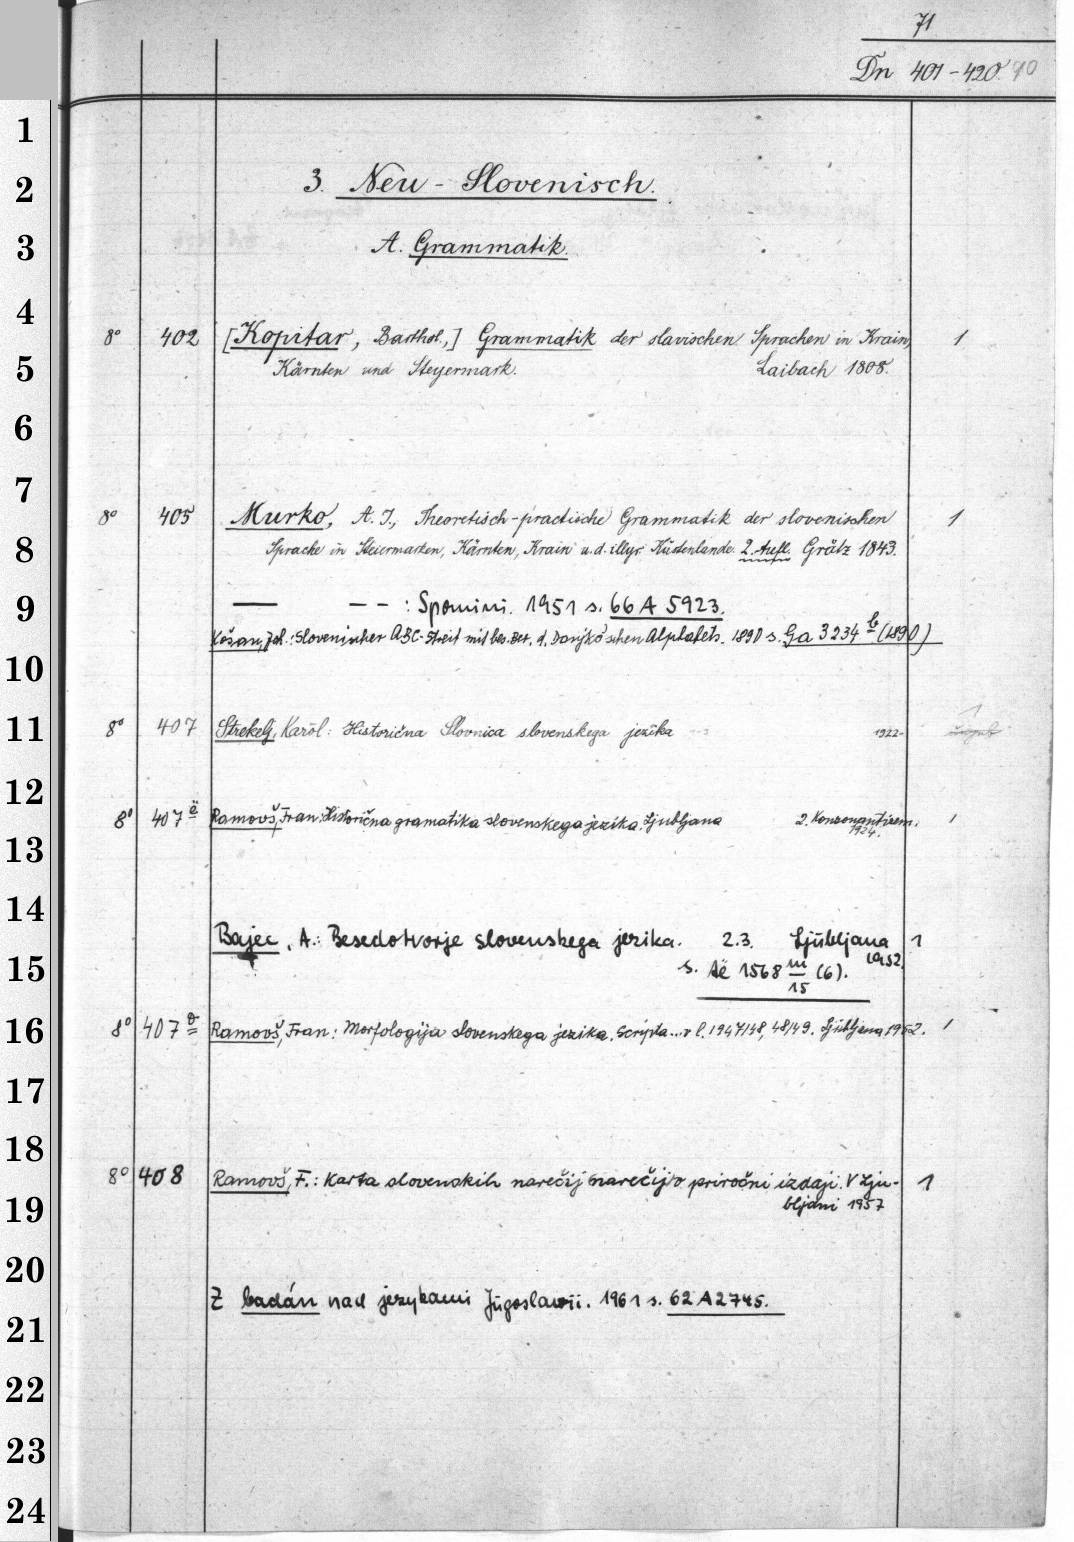 71
Dn 401-420. 90
1
2
3. Neu - Slovenisch.
3
A. Grammatik.
4
8° 402 [Kopitar, Barthol.,] Grammatik der slavischen Sprachen in Krain, 1
5
Kärnten und Steyermark. Laibach 1808.
6
7
8° 405 Murko, A. J., Theoretisch-practische Grammatik der slovenischen 1
8
Sprache in Steiermarken, Kärnten, Krain u.d. illyr. Küstenlande. 2. Aufl. Grätz 1843.
9
— – – : Spomini. 1951 s. 66 A 5923.
Joh.: Slovenischer ABC-Streit mit bes. Ber. d. Danjko'schen Alphabets. 1890 s. Ga 3234 b (1890)
10
11
8° 407 Štrekelj, Karol: Historična Slovnica slovenskega jezika 1922- 1
12
8° 407 ä Ramovš, Fran: Historična gramatika slovenskega jezika. Ljubljana 2. Konsonantizem. 1
1924.
13
14
Bajec, A.: Besedotvorje slovenskega jezika. 2.3. Ljubljana 1
1952.
15
s. Aë 1568 III/15 (6).
16
8° 407 Ramovš, Fran: Morfologija slovenskega jezika. Scripta... v l. 1947/48, 48/49. Ljubljana 1952. 1
17
18
8° 408 Ramovš, F.: Karta slovenskih narečij v priročni izdaji. V Lju- 1
19
bljani 1957
20
Z badán nad językami Jugoslawii. 1961 s. 62 A 2745.
21
22
23
24